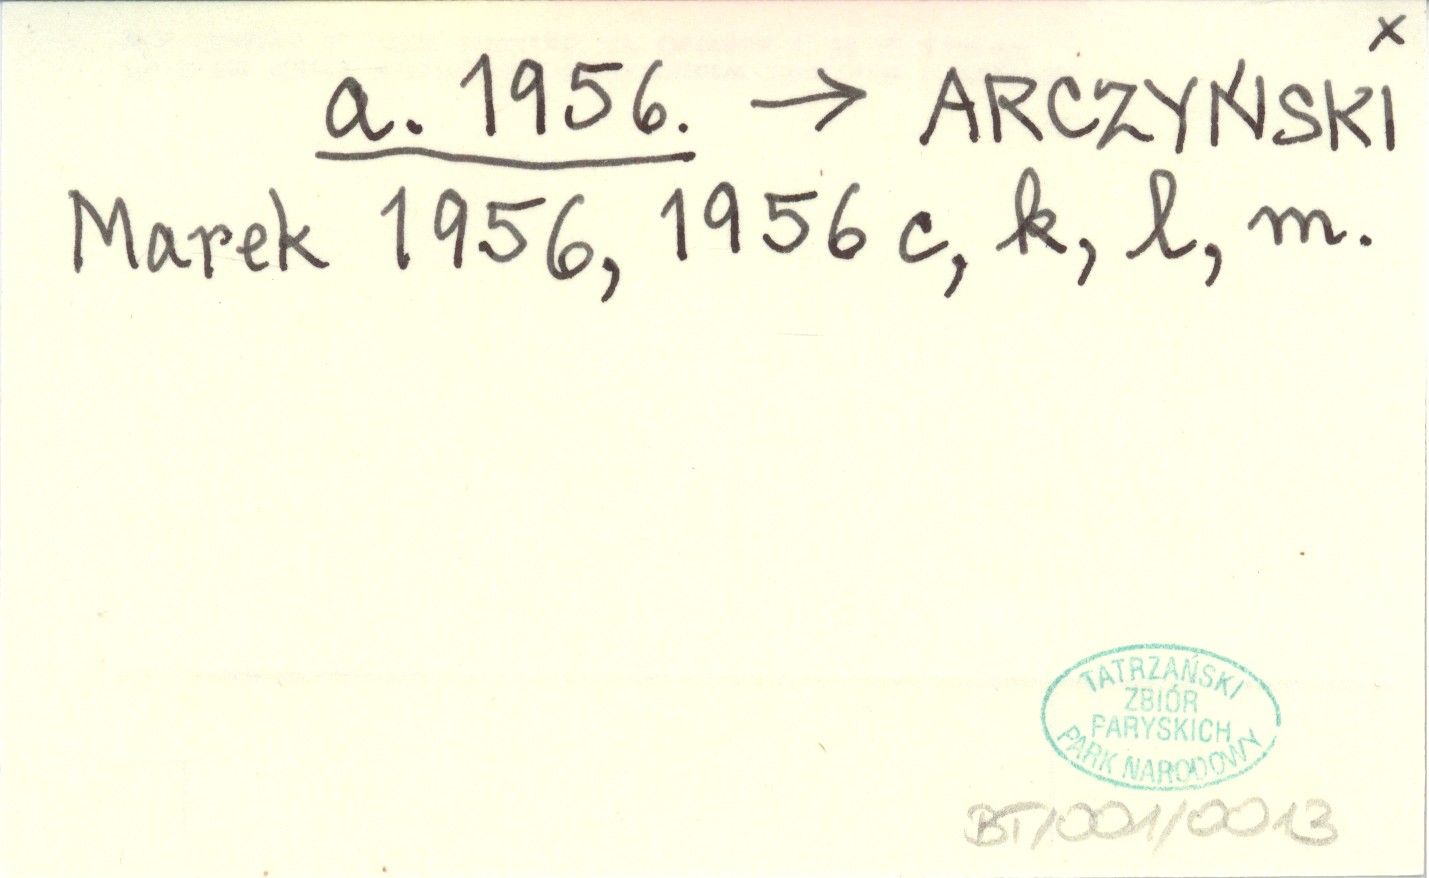 x
a. 1956. → ARCZYŃSKI
Marek 1956, 1956 c, k, l, m.
TATRZAŃSKI
ZBIÓR
PARYSKICH
PARK NARODOWY
BT/001/0013